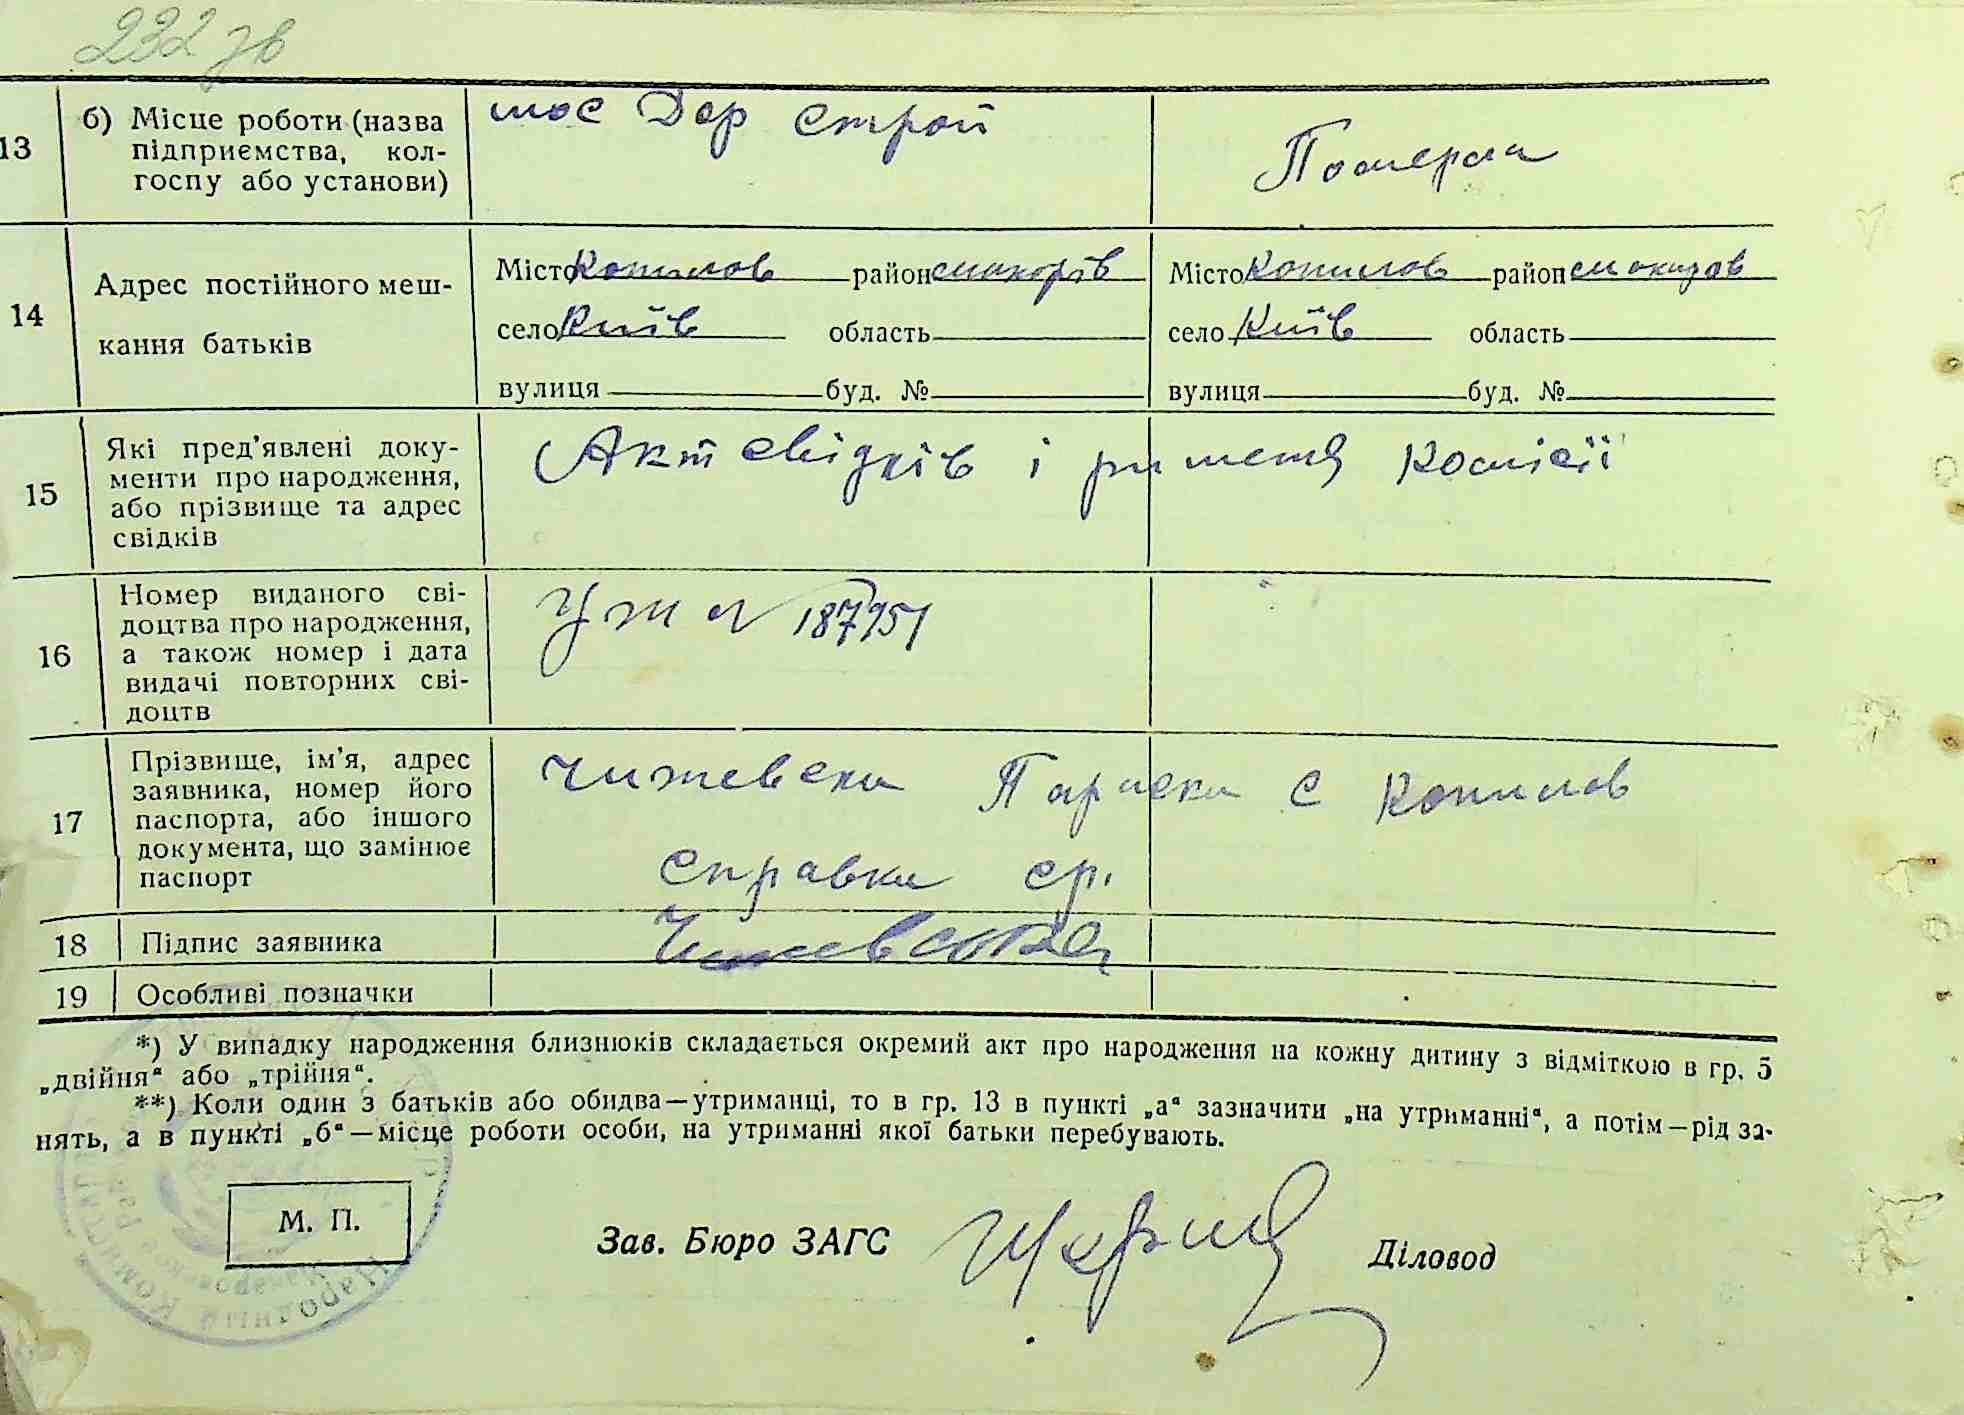 232 зв
13
б) Місце роботи (назва
підприємства, кол-
госпу або установи)
шос Дор строй
Померла
14
Адрес постійного меш-
кання батьків
Місто Копилов район макорів
село Київ область
вулиця буд. №
Місто Копилов район макаров
село Київ область
вулиця буд. №
15
Які пред'явлені доку-
менти про народження,
або прізвище та адрес
свідків
Акт свідків і комісії
16
Номер виданого сві-
доцтва про народження,
а також номер і дата
видачі повторних сві-
доцтв
УЖ № 187951
17
Прізвище, ім'я, адрес
заявника, номер його
паспорта, або іншого
документа, що замінює
паспорт
Чижевска Параска с Копилов
справка ср.
18
Підпис заявника
Чижевская
19
Особливі позначки
*) У випадку народження близнюків складається окремий акт про народження на кожну дитину з відміткою в гр. 5
„двійня" або „трійня".
**) Коли один з батьків або обидва—утриманці, то в гр. 13 в пункті „а" зазначити „на утриманні", а потім—рід за-
нять, а в пункті „б"—місце роботи особи, на утриманні якої батьки перебувають.
М. П.
Зав. Бюро ЗАГС
Діловод
Народний Коміс